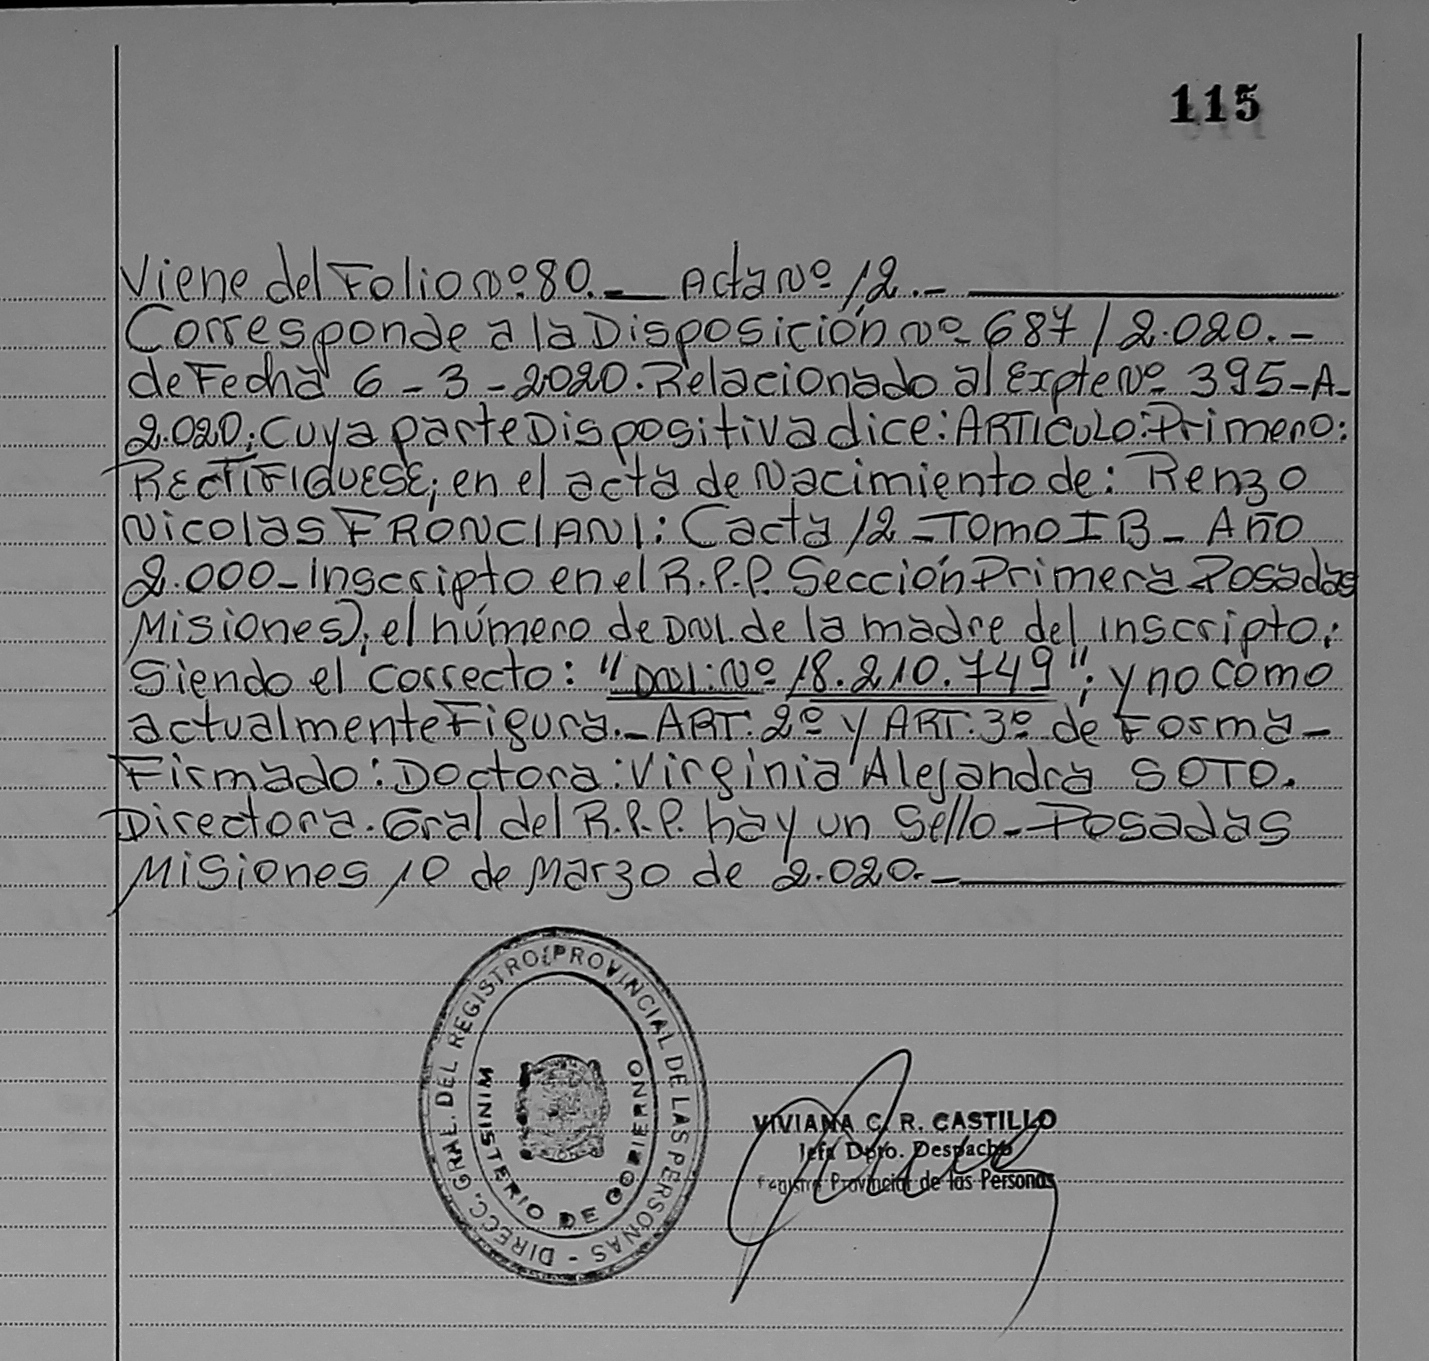 115
Viene del Folio Nº 80.— Acta Nº 12.—
Corresponde a la Disposición Nº 687/2.020.-
de Fecha 6-3-2020. Relacionado al Expte Nº 395-A-
2.020; Cuya parte Dispositiva dice: ARTICULO: Primero:
RECTIFIQUESE; en el acta de Nacimiento de: Renzo
Nicolas FRONCIANI: (acta 12 - Tomo I B - Año
2.000 - Inscripto en el R.P.P. Sección Primera Posadas
Misiones), el número de DNI. de la madre del inscripto;
Siendo el correcto: "DNI: Nº 18.210.749"; y no como
actualmente Figura.- ART: 2º y ART. 3º de Forma-
Firmado: Doctora: Virginia Alejandra SOTO.
Directora. Gral del R.P.P. hay un Sello - Posadas
Misiones 10 de Marzo de 2.020.-
DIRECC. GRAL. DEL REGISTRO PROVINCIAL DE LAS PERSONAS -
MINISTERIO DE GOBIERNO
VIVIANA C. R. CASTILLO
Jefa Dpto. Despacho
Registro Provincial de las Personas